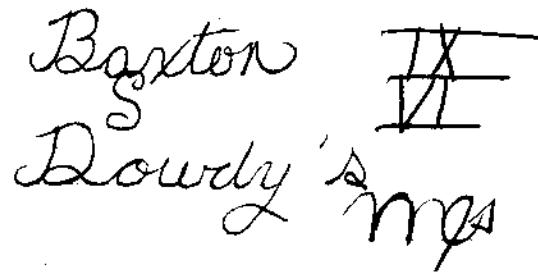 Baxton IX
S VI
Dowdy's